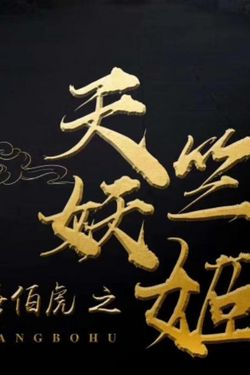 天竺
妖姬
伯虎之
ANGBOHU